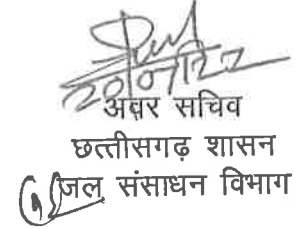 20/07/22
अवर सचिव
छत्तीसगढ़ शासन
जल संसाधन विभाग